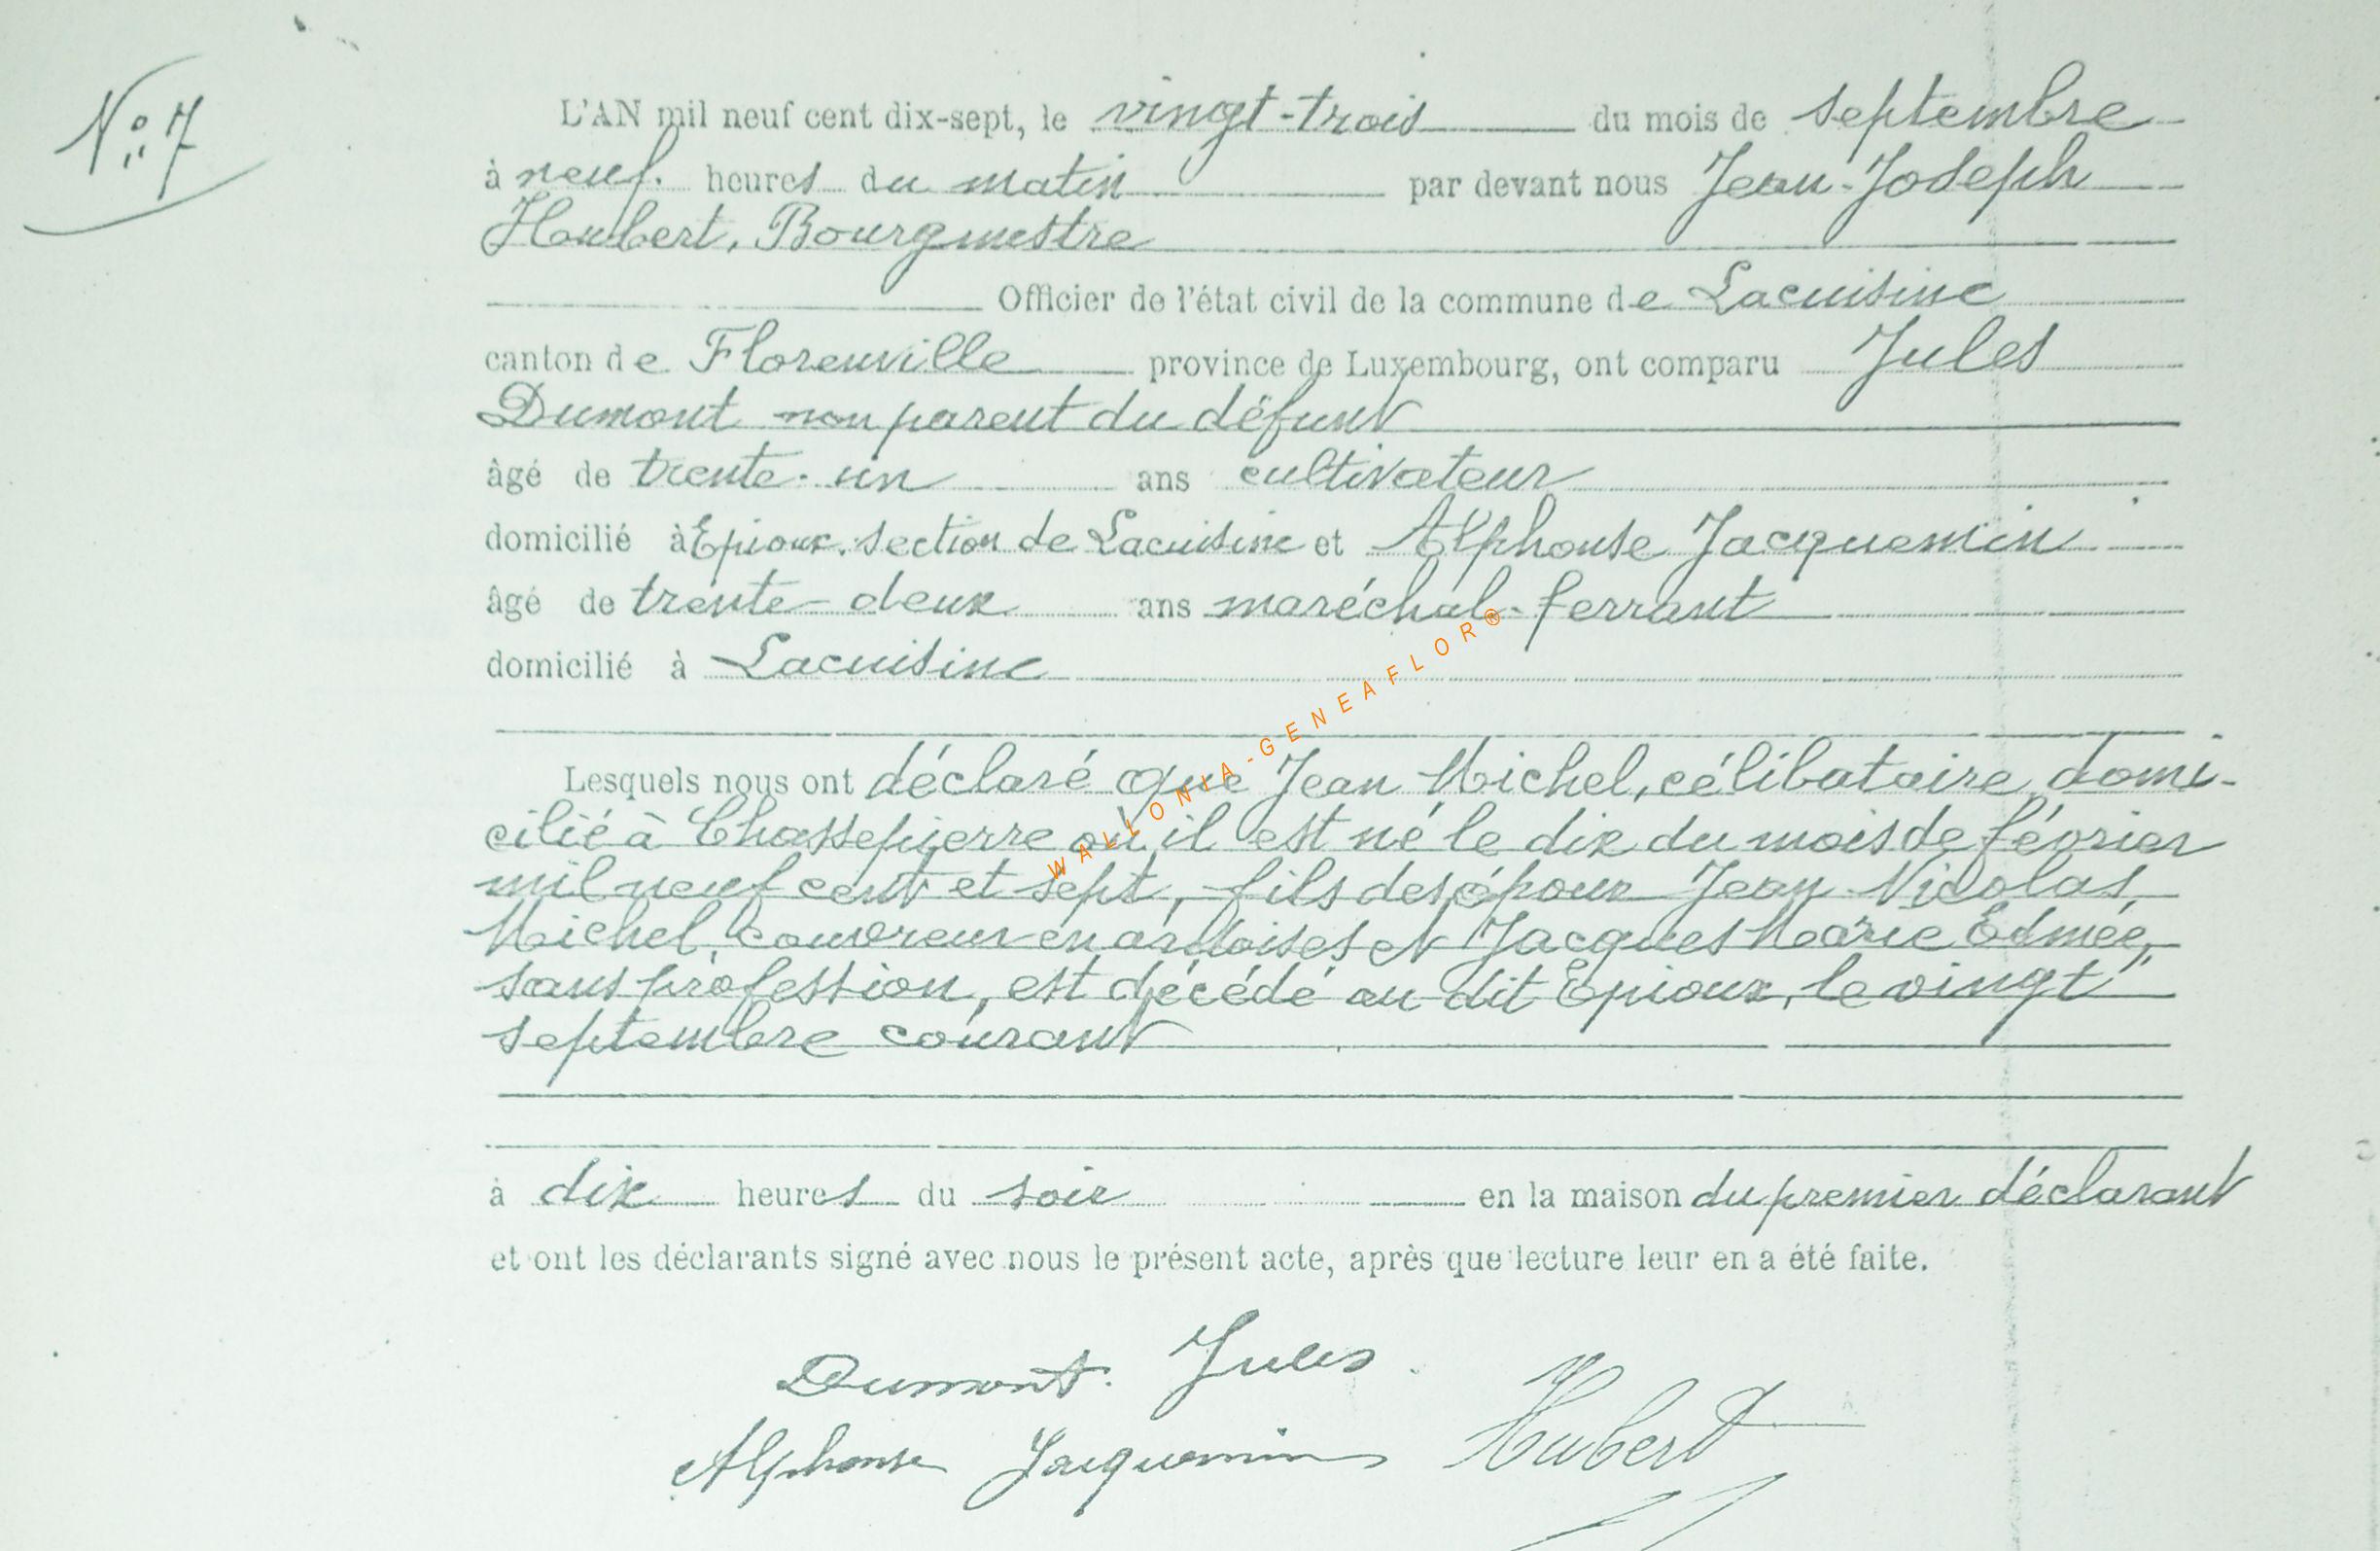 N° 7
L'AN mil neuf cent dix-sept, le vingt-trois du mois de septembre
à neuf heures du matin par devant nous Jean-Joseph
Hubert, Bourgmestre
Officier de l'état civil de la commune de Lacuisine
canton de Florenville province de Luxembourg, ont comparu Jules
Dumont non parent du défunt
âgé de trente-un ans cultivateur
domicilié à Epioux, section de Lacuisine et Alphonse Jacquemin
âgé de trente-deux ans maréchal-ferrant
domicilié à Lacuisine
Lesquels nous ont déclaré que Jean Michel, célibataire, domi-
cilié à Chassepierre où il est né le dix du mois de février
mil neuf cent et sept, fils des époux Jean Nicolas
Michel, couvreur en ardoises et Jacques Marie Edmée,
sans profession, est décédé au dit Epioux, le vingt
septembre courant
à dix heures du soir en la maison du premier déclarant
et ont les déclarants signé avec nous le présent acte, après que lecture leur en a été faite.
Dumont Jules
Alphonse Jacquemin Hubert
WALLONIA-GENEAFLOR®